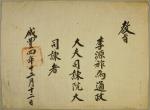 教旨
李源祚爲通政
大夫司諫院大
司諫者
咸豊四年十二月十二日